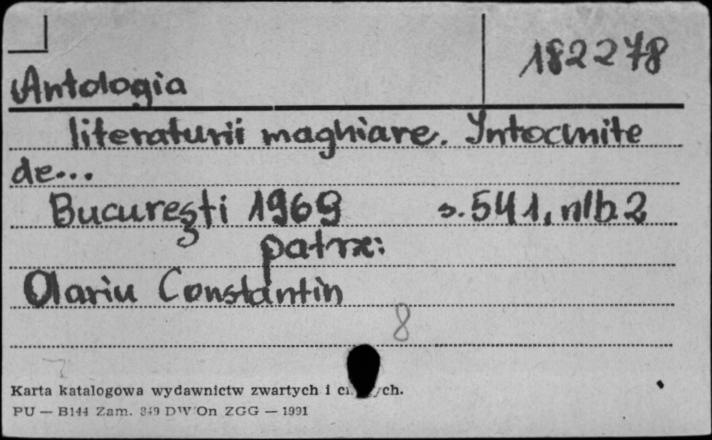 182278
Antologia
literaturii maghiare. Intocmite
de...
București 1969 s. 541, nlb. 2
patrz:
Olariu Constantin
8
Karta katalogowa wydawnictw zwartych i
PU — B144 Zam. 349 DW On ZGG — 1991